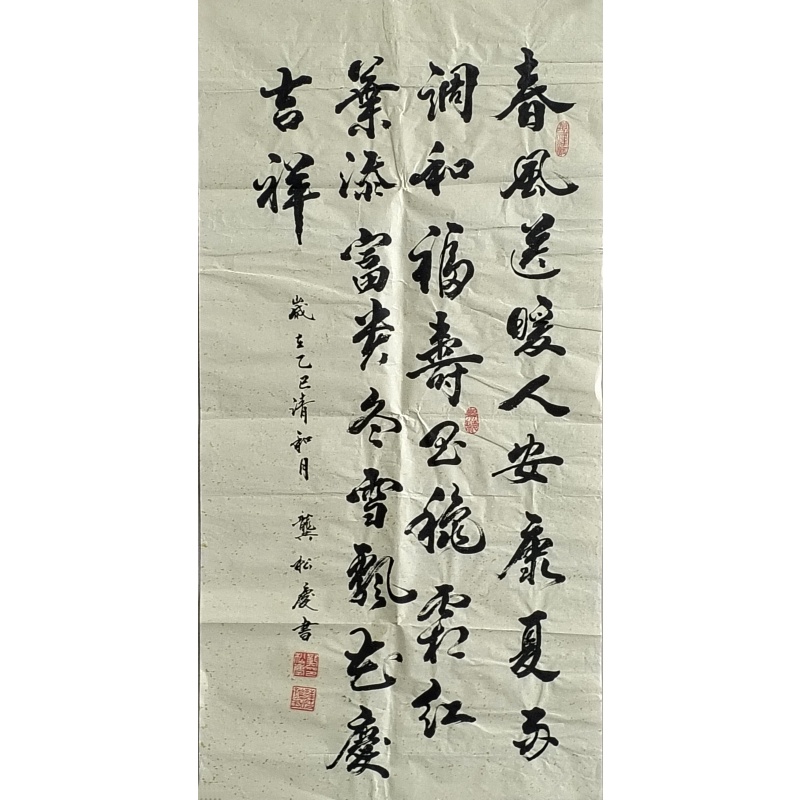 春風送暖人安康夏雨
調和福壽昌穐霜紅
葉添富貴冬雪飄花慶
吉祥
歲在乙巳清和月 龔松慶書